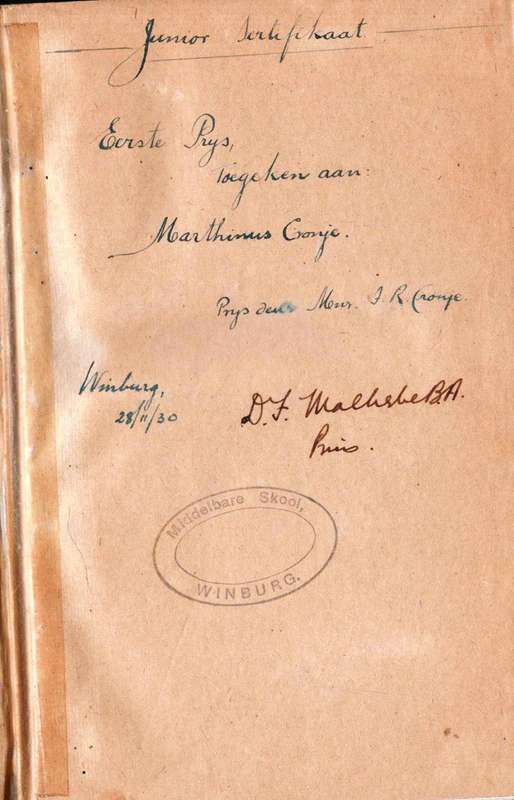 Junior Sertifikaat
Eerste Prys,
Toegeken aan:
Marthinus Cronje.
Prys deur Mnr. J. R. Cronje.
Winburg,
28/11/30
D. F. Malherbe B.A.
Prins.
Middelbare Skool,
WINBURG.